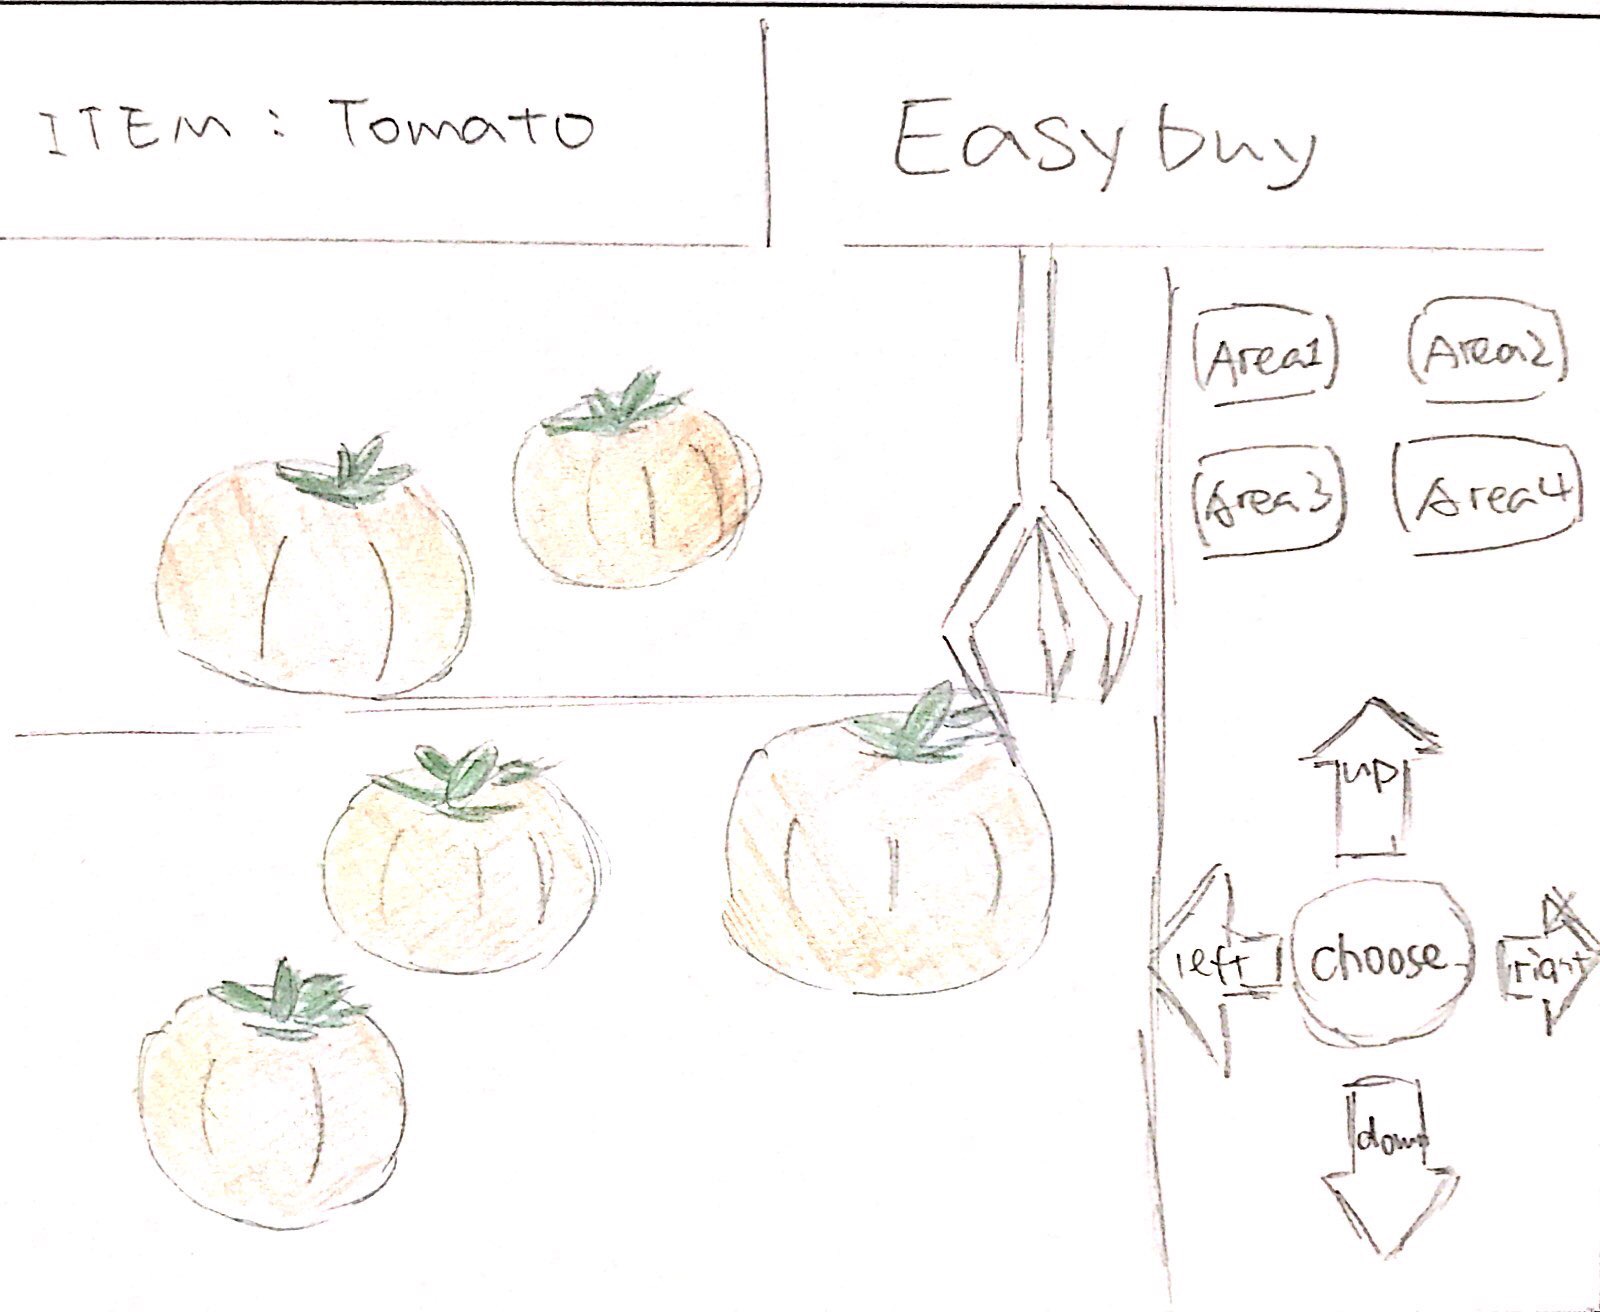 ITEM: Tomato
Easy buy
Area1
Area2
Area3
Area4
up
left
choose
right
down